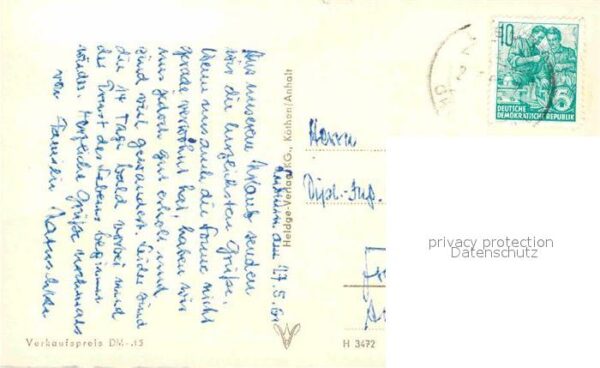 den 17.5.61
Aus unserem Urlaub senden
wir die herzlichsten Grüße.
Wenn uns auch die Sonne nicht
gerade verwöhnt hat, haben wir
uns doch gut erholt und
sind viel gewandert. Leider sind
die 14 Tage bald vorbei und
der Ernst des Lebens beginnt
wieder. Herzliche Grüße nochmals
von Familie
Heldge-Verlag KG., Köthen/Anhalt
Verkaufspreis DM -.15
H 3472
Herrn
Dipl.-Ing.
10
DEUTSCHE
DEMOKRATISCHE REPUBLIK
privacy protection
Datenschutz